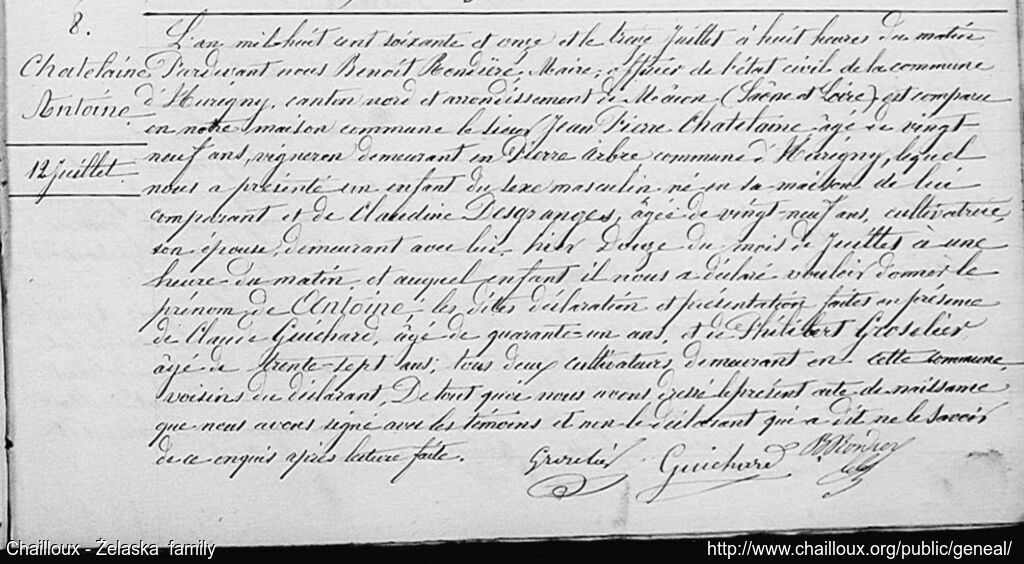 8.
Chatelaine
Antoine
12 Juillet
L'an mil huit cent soixante et onze et le treize Juillet à huit heures du matin
Pardevant nous Benoît Rondière, Maire, officier de l'état civil de la commune
d'Hurigny, canton nord et arrondissement de Mâcon (Saône et Loire) est comparu
en notre maison commune le sieur Jean Pierre Chatelaine âgé de vingt
neuf ans, vigneron demeurant en Pierre arbre commune d'Hurigny, lequel
nous a présenté un enfant du sexe masculin né en sa maison de lui
comparant et de Claudine Desgranges, âgée de vingt-neuf ans, cultivatrice,
son épouse, demeurant avec lui, hier Douze du mois de Juillet à une
heure du matin et auquel enfant il nous a déclaré vouloir donner le
prénom de Antoine, les dites déclaration et présentation faites en présence
de Claude Guichard, âgé de quarante-un ans, et de Philibert Groselier
âgé de trente-sept ans, tous deux cultivateurs demeurant en cette commune,
voisins du déclarant, De tout quoi nous avons dressé le présent acte de naissance
que nous avons signé avec les témoins et non le déclarant qui a dit ne le savoir
de ce enquis après lecture faite.
Guichard
Chailloux - Żelaska family
http://www.chailloux.org/public/geneal/